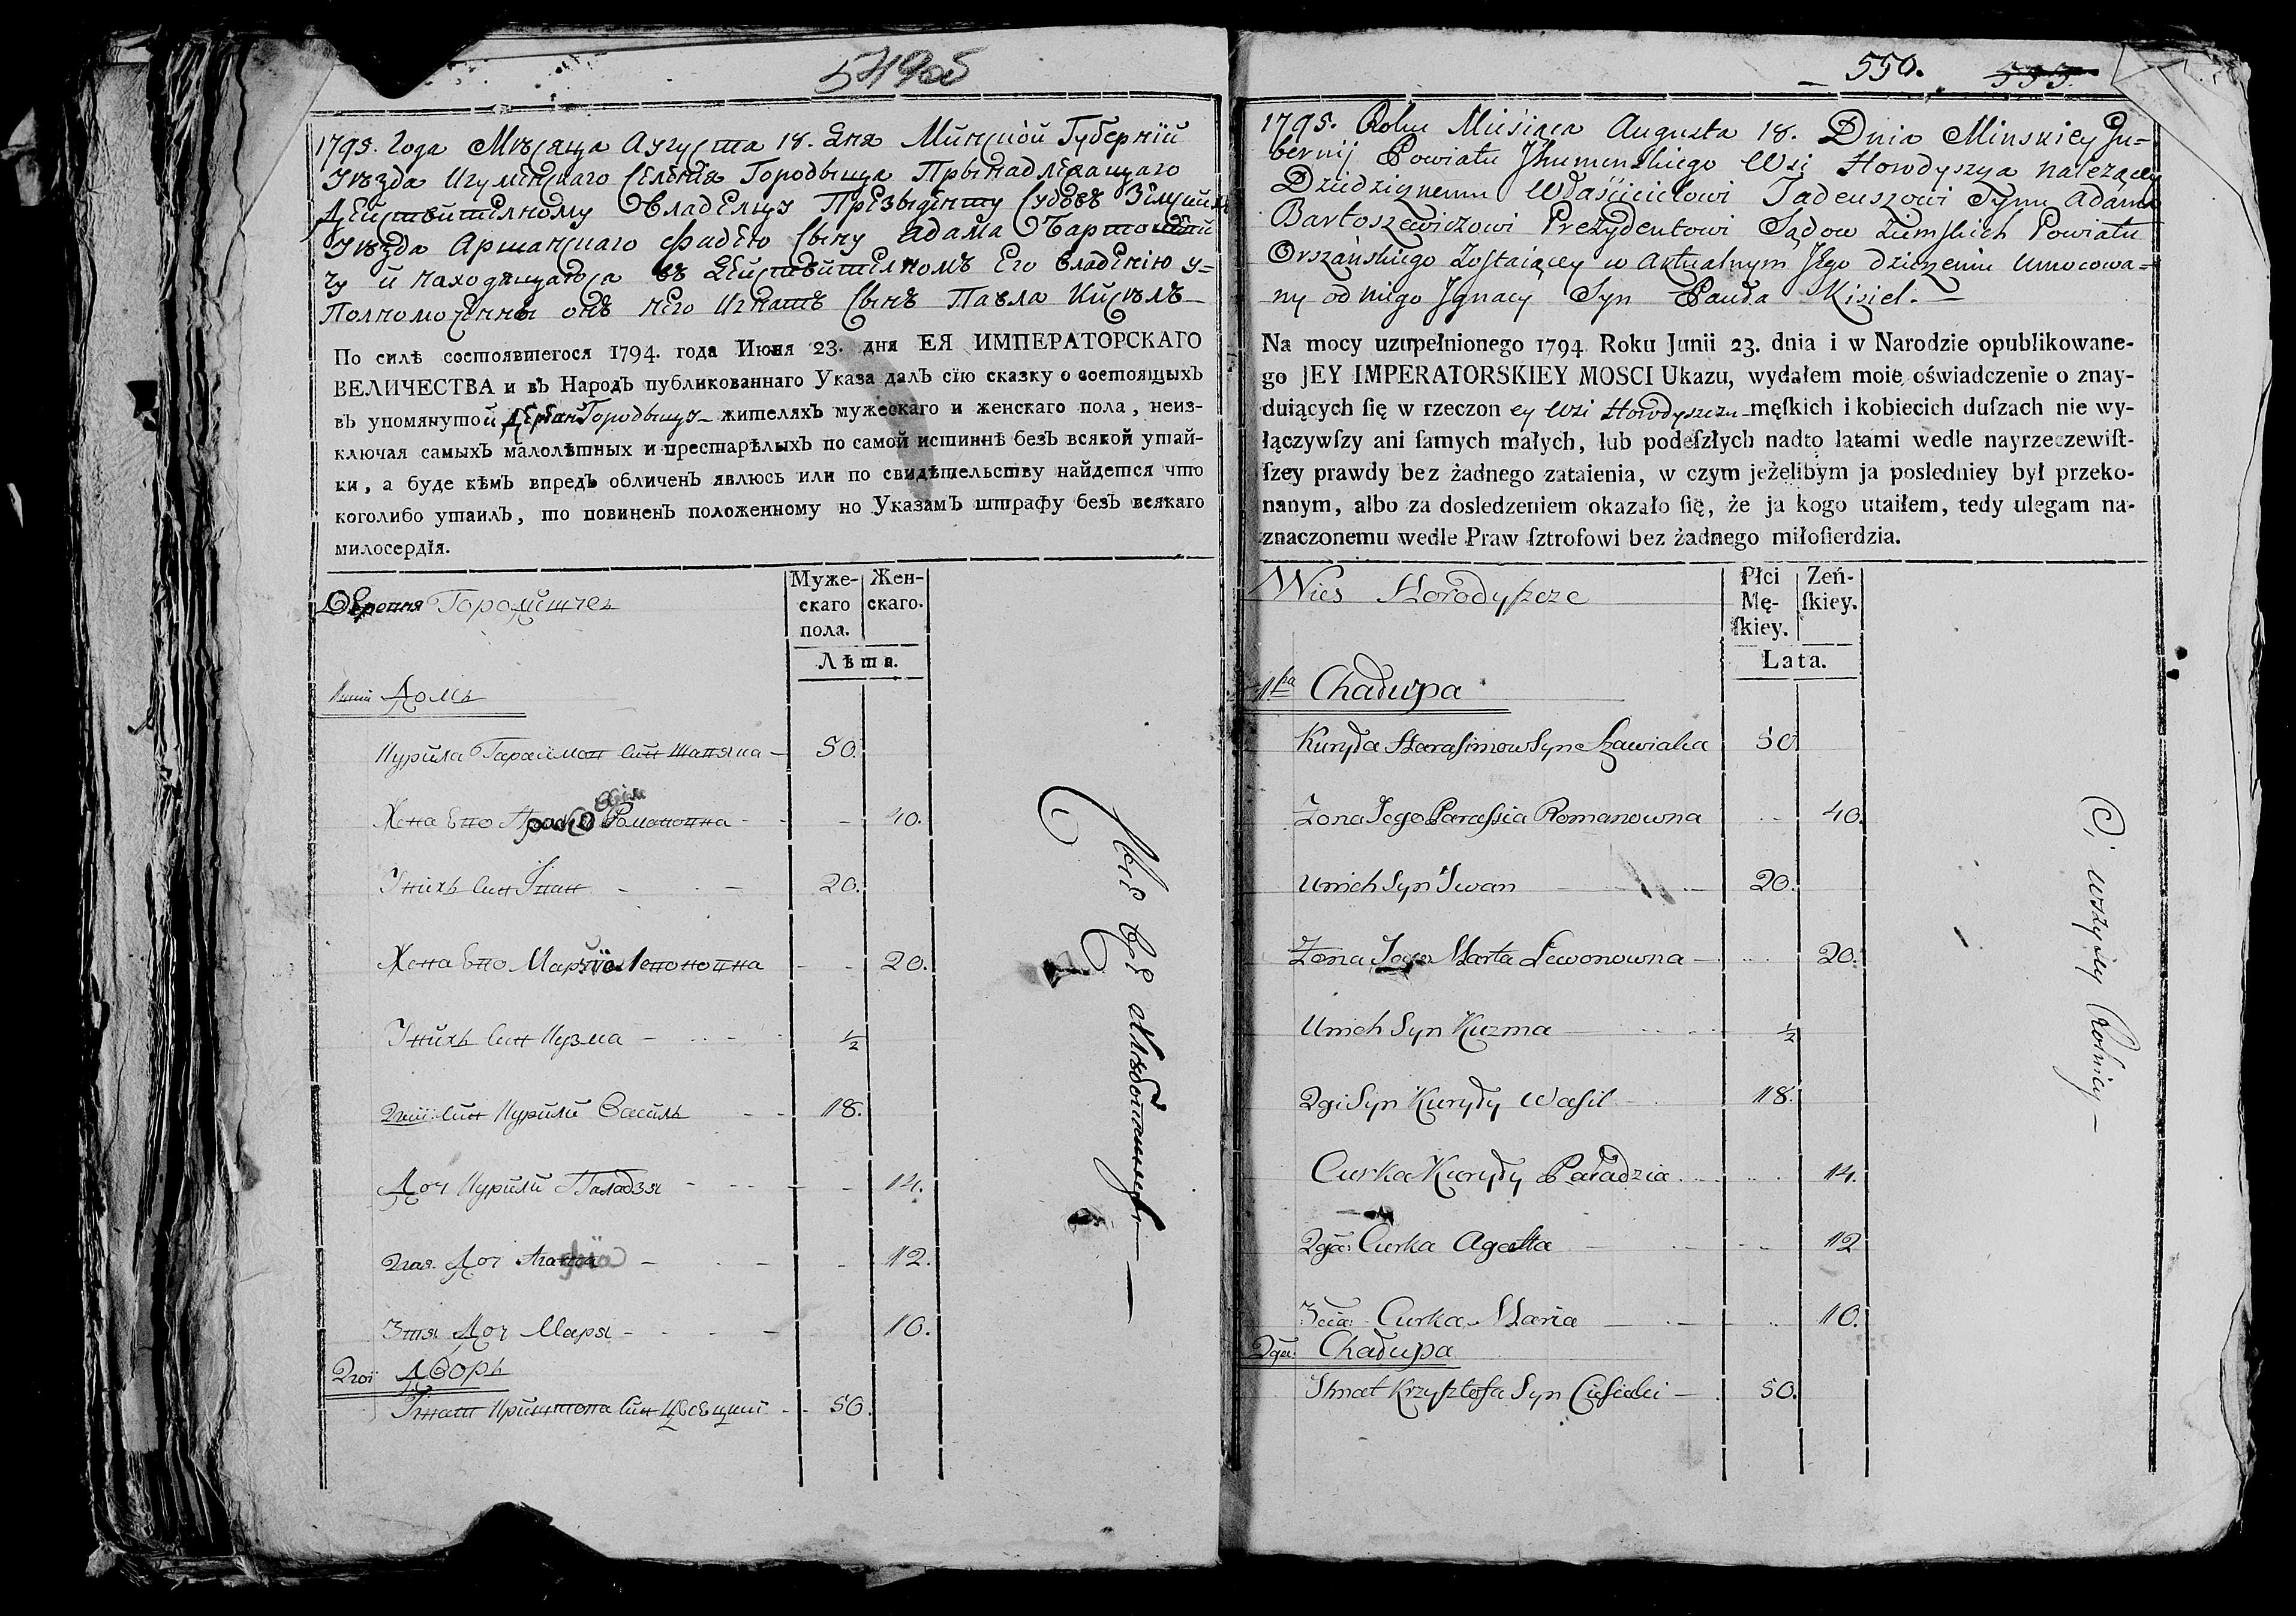 1795. Года Мѣсяца Августа 18. Дня Минской Губернїи
Уѣзда Игуменскаго Селенїя Городыща Прынадлежащаго
Действителному Владелцу Презыденту Судовъ Земских
Уѣзда Аршанскаго Фадею Сыну Адама Бартошеви
чу и находящагося въ Действителномъ Его владенїю У=
Полномоченны отъ него Игнатъ Сынъ Павла Кисель
По силѣ состоявшегося 1794. года Июня 23. дня ЕЯ ИМПЕРАТОРСКАГО
ВЕЛИЧЕСТВА и въ Народъ публикованнаго Указа далъ сїю сказку о состоящыхъ
въ упомянутой Деревни Городыщу жителяхъ мужескаго и женскаго пола, неиз-
ключая самыхъ малолѣтныхъ и престарѣлыхъ по самой истиннѣ безъ всякой утай-
ки, а буде кѣмъ впредь обличенъ явлюсь или по свидѣтельству найдется что
коголибо утаилъ, то повиненъ положенному по Указамъ штрафу безъ всякаго
милосердїя.
Муже- Жен-
скаго скаго.
пола.
Лѣта.
Домъ
50.
Жена Ево Романовна 40.
Ихъ Син Иван 20.
Жена Ево 20.
Ихъ Син Кузма ½
Син Курили Василь 18.
Доч Курили Паладзя 14.
2гая Доч 12.
3тя Доч Маря 10.
2гої Дворъ
50.
550.
1795. Roku Miesiąca Augusta 18. Dnia Minskiey Gu=
bernij Powiatu Jhumenskiego Wsi Horodyszcza należącey
Dziedzicznemu Właścicielowi Tadeuszowi Synu Adama
Bartoszewiczowi Prezydentowi Sądow Ziemskich Powiatu
Orszańskiego Zostaiącey w Aktualnym Jego dzierżeniu Umocowa=
ny od niego Jgnacy Syn Pawła Kisiel.
Na mocy uzupełnionego 1794 Roku Junii 23. dnia i w Narodzie opublikowane-
go JEY IMPERATORSKIEY MOSCI Ukazu, wydałem moie oświadczenie o znay-
duiących ſię w rzeczon ey Wsi Horodyszczu męſkich i kobiecich duſzach nie wy-
łączywſzy ani ſamych małych, lub podeſzłych nadto latami wedle nayrzeczewiſt-
ſzey prawdy bez żadnego zataienia, w czym jeżelibym ja posledniey był przeko-
nanym, albo za dosledzeniem okazało ſię, że ja kogo utaiłem, tedy ulegam na-
znaczonemu wedle Praw ſztrofowi bez żadnego miłoſierdzia.
Wies Horodyszcze
Płci Zeń-
Mę- ſkiey.
ſkiey.
Lata.
1sza Chałupa
Kuryła Harasimow Syn Szawiała 50
Zona Jego Parassia Romanowna 40.
Umich Syn Jwan 20.
Zona Jego Marta Lewonowna 20.
Umich Syn Kuzma ½
2gi Syn Kuryły Wasil 18.
Curka Kuryły Paładzia 14.
2ga Curka Agatta 12
3cia Curka Maria 10.
2ga Chałupa
Jhnat Krzysztofa Syn 50.
Ci wszyscy Rolnicy